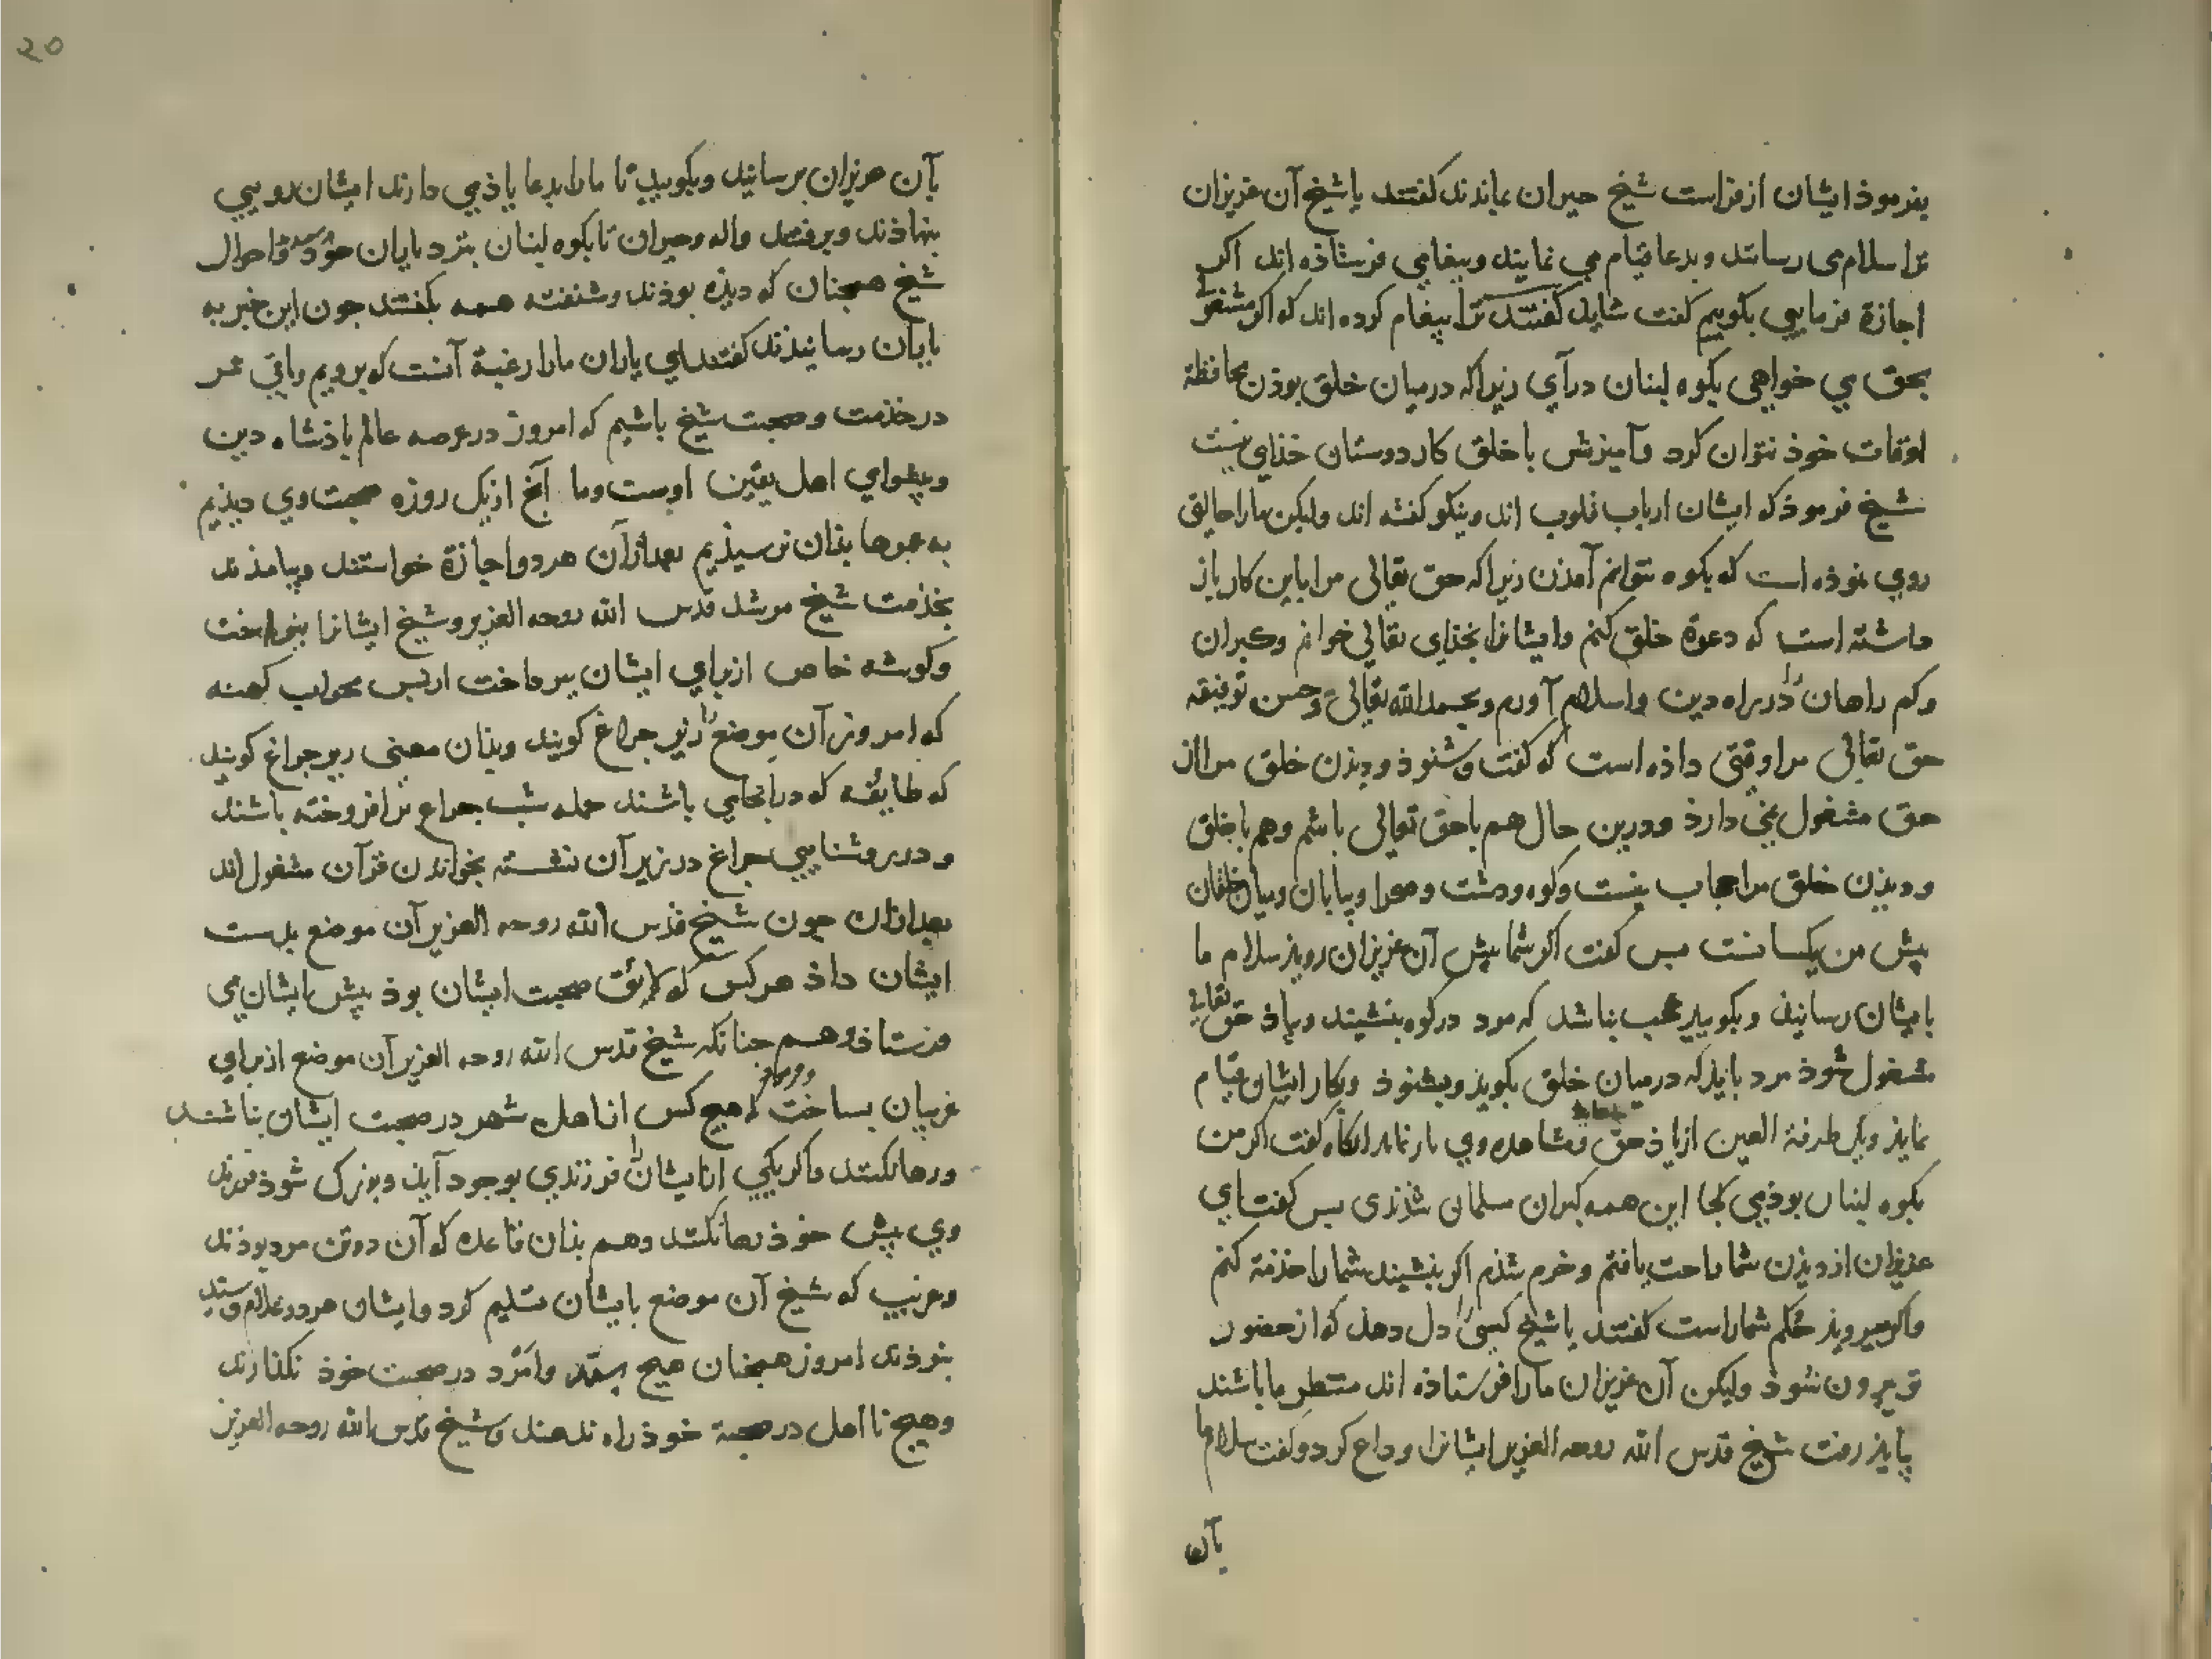 بفرموذ ایشان از فراست شیخ حیران بماندند کفتند یا شیخ آن عزیزان
ترا سلام می رسانند و بدعا قیام می نمایند و پیغامی فرستاذه اند اکر
اجازة فرمایی بکوییم کفت شاید کفتند ترا پیغام کرده اند که اکر مشغولی
بحق می خواهی بکوه لبنان درآی زیرا که درمیان خلق بوذن محافظة
اوقات خوذ نتوان کرد و آمیزش با خلق کار دوستان خذای نیست
شیخ فرموذ که ایشان ارباب قلوب اند و نیکو کفته اند ولیکن ما را حالتی
روی نموذه است که بکوه نتوانم آمذن زیرا که حق تعالی مرا باین کار باز
داشته است که دعوة خلق کنم و ایشانرا بخذای تعالی خوانم و کبران
و کم راهان را در راه دین و اسلام آورم و بحمد الله تعالی و حسن توفیقه
حق تعالی مرا وقتی داذه است که کفت و شنوذ و دیذن خلق مرا از
حق مشغول نمی دارذ و درین حال هم با حق تعالی باشم و هم با خلق
و دیذن خلق مرا حجاب نیست و کوه و دشت و صحرا و بیابان و میان خلقان
پیش من یکسانست پس کفت اکر شما پیش آن عزیزان رویذ سلام ما
بایشان رسانید و بکویید عجب نباشد که مرد در کوه بنشیند و بیاذ حق تعالی
مشغول شوذ مرد بایذ که درمیان خلق بکویذ و بشنوذ و بکار ایشان قیام
نمایذ و یک طرفة العین از یاذ حق و مشاهده وی باز نماند آنکاه کفت اکر من
بکوه لبنان بوذمی کجا این همه کبران مسلمان شذندی پس کفت ای
عزیزان از دیذن شما راحت یافتم و خرم شذم اکر بنشینید شما را خذمة کنم
و اکر میرویذ حکم شما راست کفتند یا شیخ کسی را دل دهد که از حضور
تو بیرون شوذ ولیکن آن عزیزان ما را فرستاذه اند منتظر ما باشند
بایذ رفت شیخ قدس الله روحه العزیز ایشانرا وداع کرد و کفت سلام ما
بآن
۲۰
بآن عزیزان برسانید و بکویید تا ما را بدعا یاذ می دارند ایشان روی
بنهاذند و برفتند واله و حیران تا بکوه لبنان بنزد یاران خوذ رسیدند و احوال
شیخ همچنان که دیذه بوذند و شنفته همه بکفتند جون این خبر به
یاران رسانیذند کفتند ای یاران ما را رغبة آنست که برویم و باقی عمر
در خذمت و صحبت شیخ باشیم که امروز در عرصه عالم پاذشاه دین
و پیشوای اهل یقین اوست و ما آنج از یک روزه صحبت وی دیذیم
به عمرها بذان نرسیذیم بعد از آن هر دو اجازة خواستند و بیامذند
بخذمت شیخ مرشد قدس الله روحه العزیز و شیخ ایشانرا بنواخت
و کوشه خاص از برای ایشان بپرداخت از پس محراب کهنه
که امروز آن موضع را زیر جراغ کویند و بذان معنی زیر جراغ کویند
که طایفه که در آنجای باشند جمله شب جراغ برافروخته باشند
و در روشنایی جراغ در زیر آن نشسته بخواندن قرآن مشغول اند
بعد از آن جون شیخ قدس الله روحه العزیز آن موضع بدست
ایشان داذ هر کس که لائق صحبت ایشان بوذ پیش ایشان می
فرستاذ و هم جنانکه شیخ قدس الله روحه العزیز آن موضع از برای
غریبان بساخت و فرموذ که هیچ کس از اهل شهر در صحبت ایشان نباشند
و رها نکنند و اکر یکی از ایشان را فرزندی بوجود آیذ و بزرک شوذ فرزند
وی پیش خوذ رها نکنند و هم بذان قاعده که آن دو تن مرد بوذند
و غریب که شیخ آن موضع بایشان تسلیم کرد و ایشان هر دو غلام و سید
بوذند امروز همچنان هیچ سید و امرد در صحبت خوذ نکذارند
و هیچ نا اهل در صحبة خوذ راه ندهند و شیخ قدس الله روحه العزیز